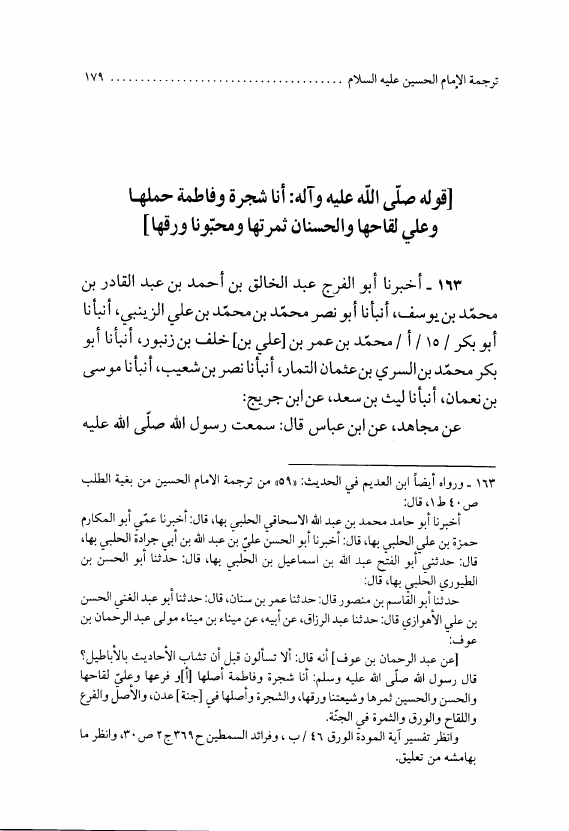 ترجمة الإمام الحسين عليه السلام ....................................... ١٧٩
[قوله صلّى اللّه عليه وآله: أنا شجرة وفاطمة حملهـا
وعلي لقاحها والحسنان ثمرتها ومحبّونا ورقها]
١٦٣ ـ أخبرنا أبو الفرج عبد الخالق بن أحمد بن عبد القادر بن
محمّد بن يوسف، أنبأنا أبو نصر محمّد بن محمّد بن علي الزينبي، أنبأنا
أبو بكر / ١٥ / أ / محمّد بن عمر بن [علي بن] خلف بن زنبور، أنبأنا أبو
بكر محمّد بن السري بن عثمان التمار، أنبأنا نصر بن شعيب، أنبأنا موسى
بن نعمان، أنبأنا ليث بن سعد، عن ابن جريج:
عن مجاهد، عن ابن عباس قال: سمعت رسول الله صلّى الله عليه
١٦٣ ـ ورواه أيضاً ابن العديم في الحديث: «٥٩» من ترجمة الامام الحسين من بغية الطلب
ص ٤٠ ط ١، قال:
أخبرنا أبو حامد محمد بن عبد الله الاسحاقي الحلبي بها، قال: أخبرنا عمّي أبو المكارم
حمزة بن علي الحلبي بها، قال: أخبرنا أبو الحسن عليّ بن عبد الله بن أبي جرادة الحلبي بها،
قال: حدثني أبو الفتح عبد الله بن اسماعيل بن الحلبي بها، قال: حدثنا أبو الحسن بن
الطيوري الحلبي بها، قال:
حدثنا أبو القاسم بن منصور قال: حدثنا عمر بن سنان، قال: حدثنا أبو عبد الغني الحسن
بن علي الأهوازي قال: حدثنا عبد الرزاق، عن أبيه، عن ميناء بن ميناء مولى عبد الرحمان بن
عوف:
[عن عبد الرحمان بن عوف] أنه قال: ألا تسألون قبل أن تشاب الأحاديث بالأباطيل؟
قال رسول الله صلّى الله عليه وسلم: أنا شجرة وفاطمة أصلها [أ]و فرعها وعليّ لقاحها
والحسن والحسين ثمرها وشيعتنا ورقها، والشجرة وأصلها في [جنة] عدن، والأصل والفرع
واللقاح والورق والثمرة في الجنّة.
وانظر تفسير آية المودة الورق ٤٦ / ب ، وفرائد السمطين ح ٣٦٩ ج ٢ ص ٣٠، وانظر ما
بهامشه من تعليق.